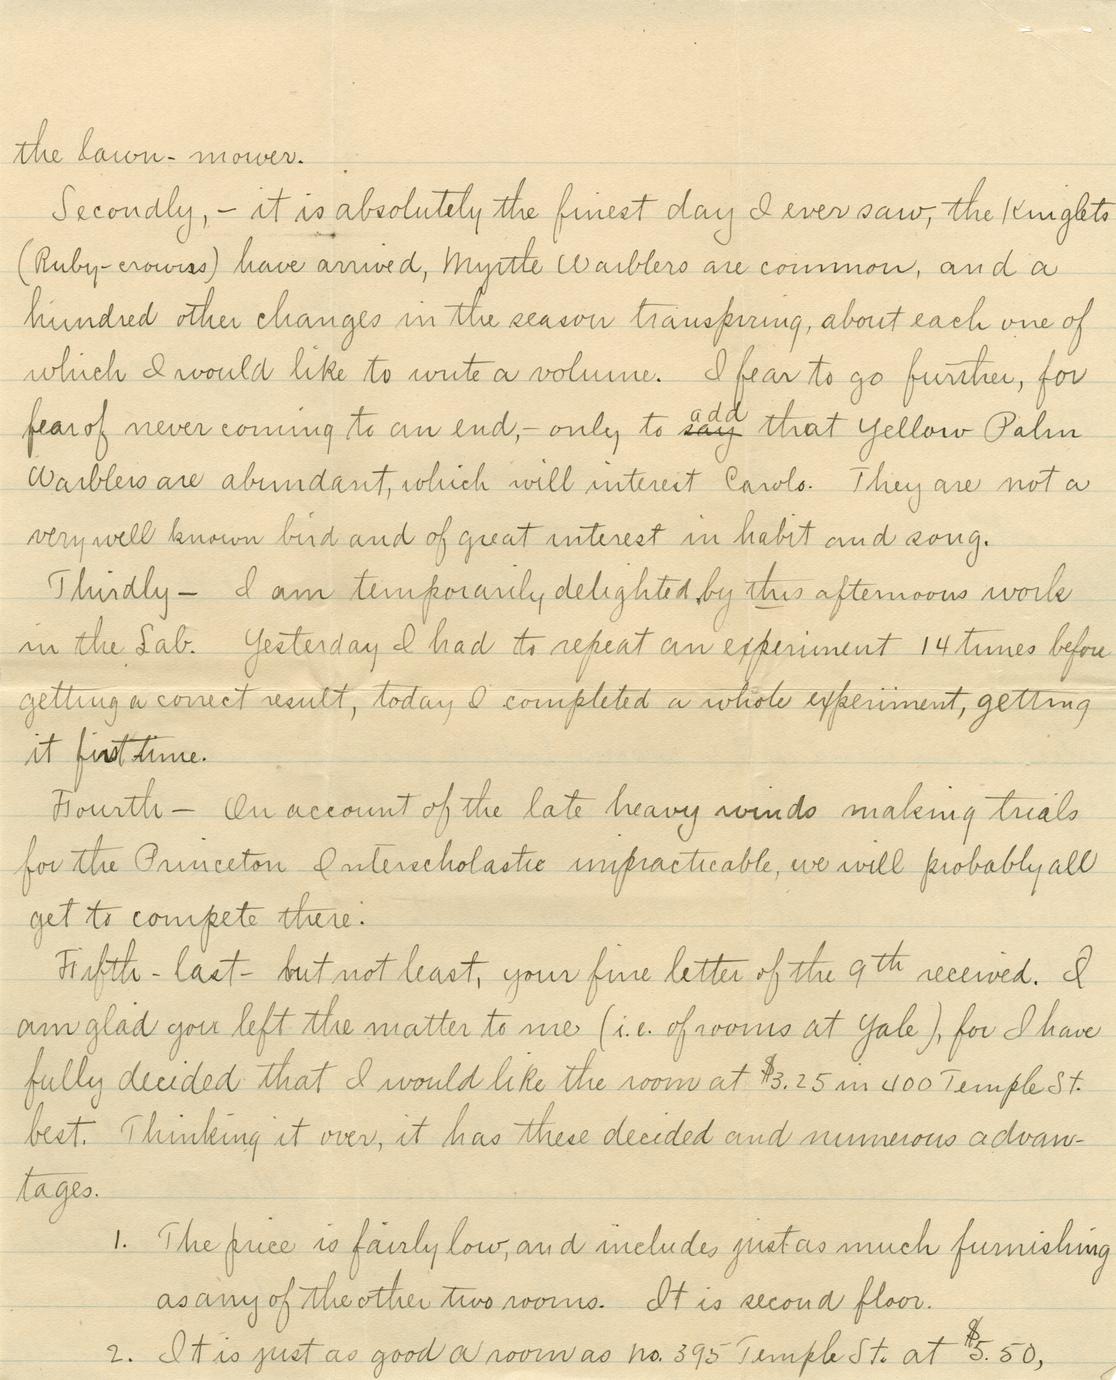 the lawn-mower.
Secondly,- it is absolutely the finest day I ever saw, the Kinglets
(Ruby-crowns) have arrived, Myrtle Warblers are common, and a
hundred other changes in the season transpiring, about each one of
which I would like to write a volume. I fear to go further, for
fear of never coming to an end,- only to say add that Yellow Palm
Warblers are abundant, which will interest Carolo. They are not a
very well known bird and of great interest in habit and song.
Thirdly- I am temporarily delighted by this afternoons work
in the Lab. Yesterday I had to repeat an experiment 14 times before
getting a correct result, today I completed a whole experiment, getting
it first time.
Fourth- On account of the late heavy winds making trials
for the Princeton Interscholastic impracticable, we will probably all
get to compete there.
Fifth - last- but not least, your fine letter of the 9th received. I
am glad you left the matter to me (i.e. of rooms at Yale), for I have
fully decided that I would like the room at $3.25 in 400 Temple St.
best. Thinking it over, it has these decided and numerous advan-
tages.
1. The price is fairly low, and includes just as much furnishing
as any of the other two rooms. It is second floor.
2. It is just as good a room as no. 395 Temple St. at $5.50,